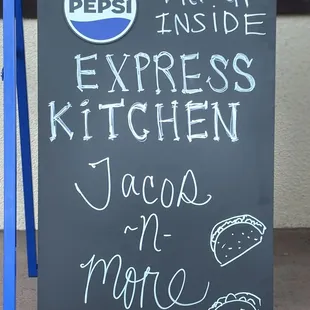 PEPSI
INSIDE
EXPRESS
KITCHEN
Tacos
~n-
More